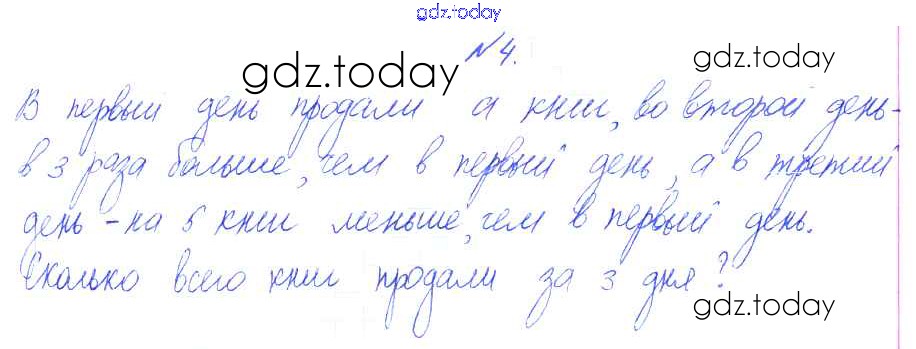 gdz.today
№ 4.
gdz.today
gdz.today
В первый день продали а книг, во второй день -
в 3 раза больше, чем в первый день, а в третий
день - на 5 книг меньше, чем в первый день.
Сколько всего книг продали за 3 дня?
gdz.today